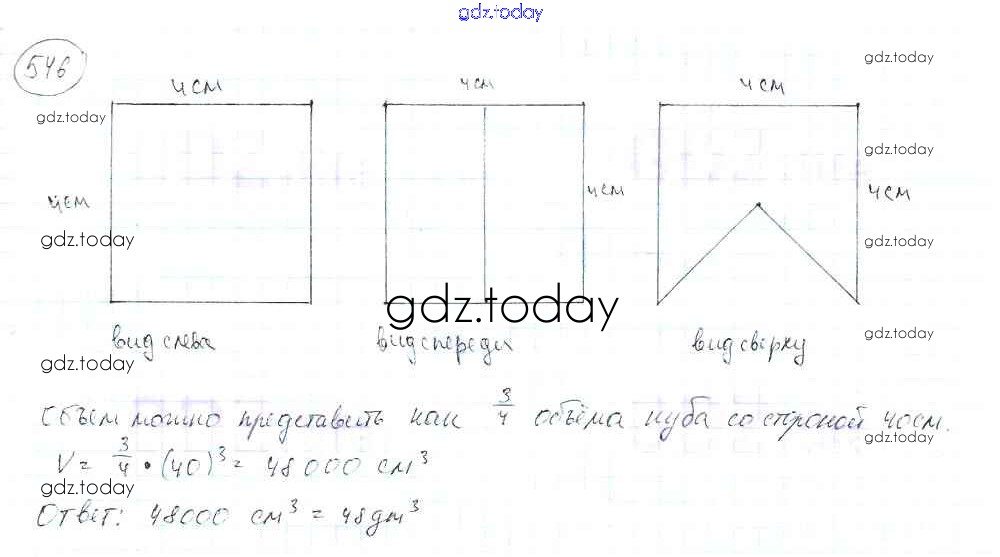 gdz.today
546
gdz.today
4 см
4 см
4 см
gdz.today
gdz.today
4 см
4 см
4 см
gdz.today
gdz.today
gdz.today
gdz.today
вид слева
вид спереди
вид сверху
gdz.today
Объем можно представить как 3/4 объёма куба со стороной 40см.
gdz.today
V = 3/4 • (40)³ = 48 000 см³
gdz.today
Ответ: 48000 см³ = 48дм³